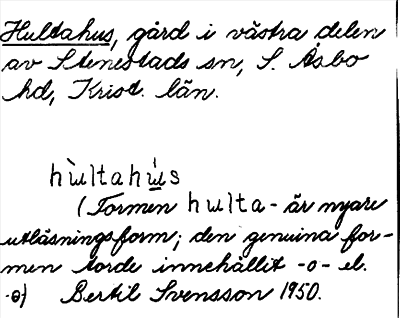 Hultahus, gård i västra delen
av Stenestads sn, S. Åsbo
hd, Krist. län.
hùltahús
(Formen hulta- är nyare
utläsningsform; den genuina for-
men torde innehållit -o- el.
-ɵ) Bertil Svensson 1950.